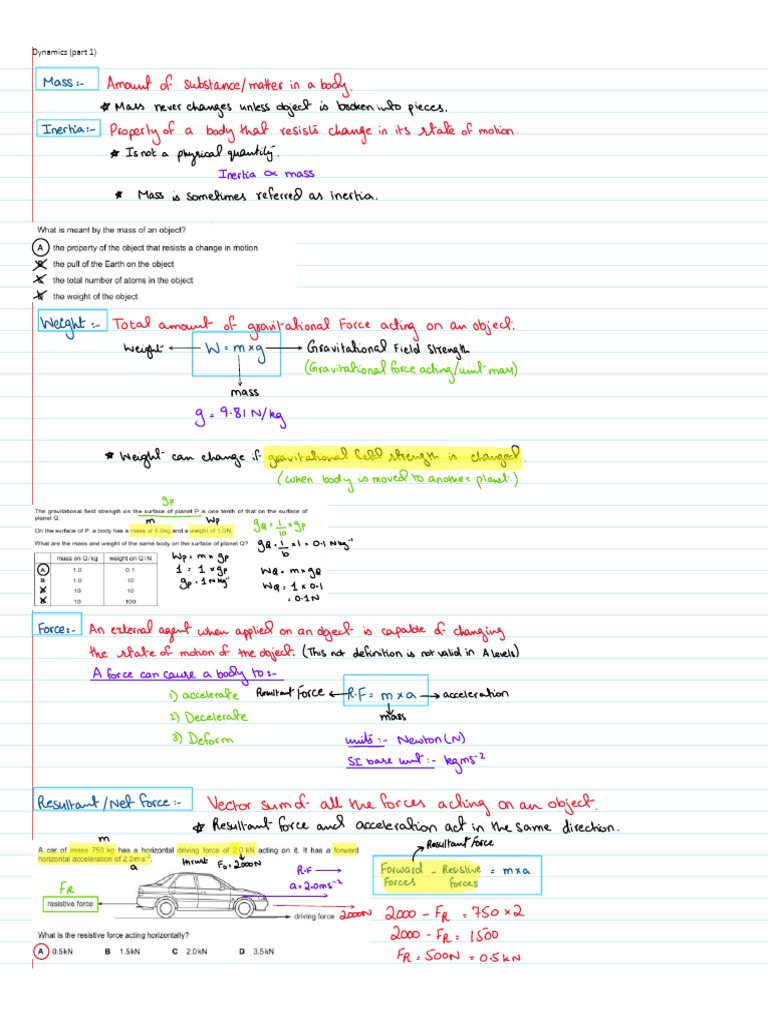 Dynamics (part 1)
Mass:- Amount of substance/matter in a body.
* Mass never changes unless object is broken into pieces.
Inertia:- Property of a body that resists change in its state of motion.
* Is not a physical quantity.
Inertia ∝ mass
* Mass is sometimes referred as inertia.
What is meant by the mass of an object?
A the property of the object that resists a change in motion
B the pull of the Earth on the object
C the total number of atoms in the object
D the weight of the object
Weight:- Total amount of gravitational Force acting on an object.
Weight ← W = m×g → Gravitational Field Strength
(Gravitational force acting/unit mass)
mass
g = 9.81 N/kg
* Weight can change if gravitational field strength is changed.
(when body is moved to another planet.)
gP
The gravitational field strength on the surface of planet P is one tenth of that on the surface of
planet Q.
m Wp
On the surface of P, a body has a mass of 1.0kg and a weight of 1.0N.
What are the mass and weight of the same body on the surface of planet Q?
mass on Q / kg weight on Q / N
A 1.0 0.1
B 1.0 10
C 10 10
D 10 100
Wp = m × gp
1 = 1 × gp
gp = 1 N kg⁻¹
gQ = 1/10 × gP
gQ = 1/10 × 1 = 0.1 N kg⁻¹
WQ = m × gQ
WQ = 1 × 0.1
= 0.1N
Force:- An external agent when applied on an object is capable of changing
the state of motion of the object. (This not definition is not valid in A levels)
A force can cause a body to:-
1) accelerate
2) Decelerate
3) Deform
Resultant Force ← R.F = m × a → acceleration
mass
units:- Newton (N)
SI base unit:- kgms⁻²
Resultant/Net force:- Vector sum of all the forces acting on an object.
* Resultant force and acceleration act in the same direction.
m
A car of mass 750 kg has a horizontal driving force of 2.0 kN acting on it. It has a forward
horizontal acceleration of 2.0 m s⁻².
a thrust FD = 2000N
R.F
a = 2.0ms⁻²
FR
resistive force
driving force 2000N
What is the resistive force acting horizontally?
A 0.5 kN B 1.5 kN C 2.0 kN D 3.5 kN
Resultant Force
Forward Forces - Resistive forces = m×a
2000 - FR = 750 × 2
2000 - FR = 1500
FR = 500N = 0.5 kN